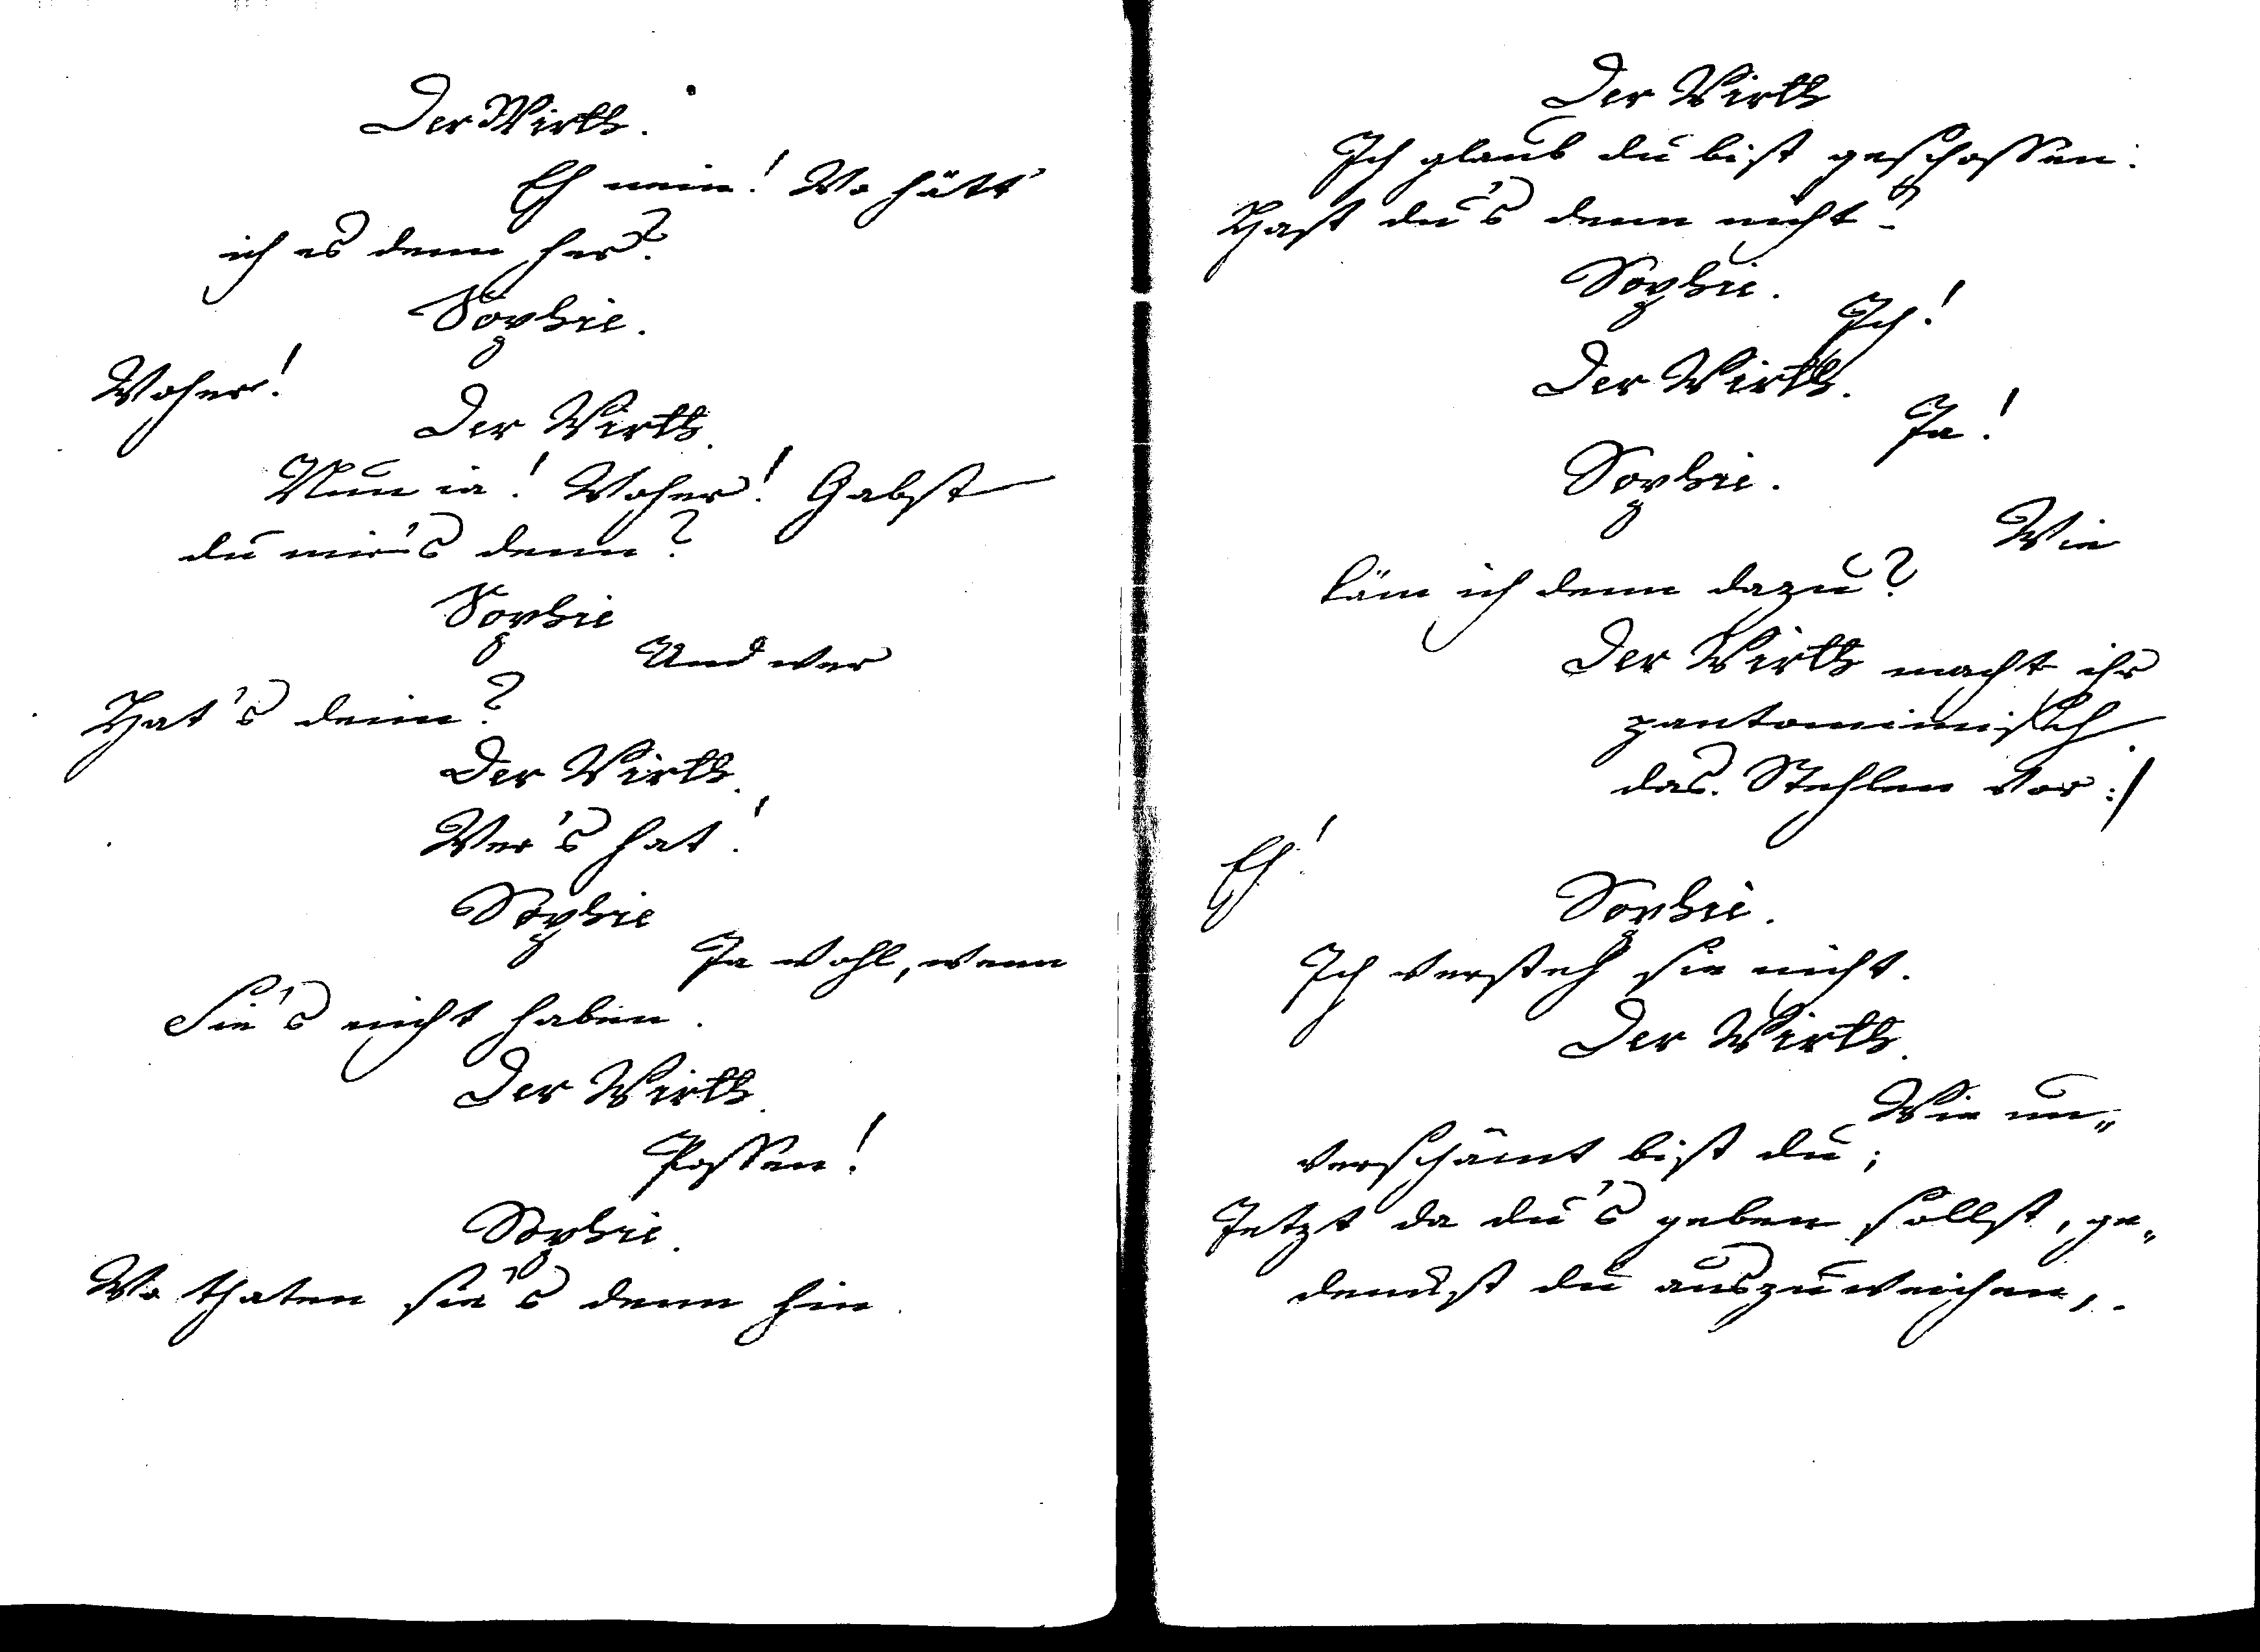 Der Wirth.
Eh nein! Wo hätt'
ich es denn her?
Sophie.
Woher!
Der Wirth.
Nun ia! Woher! Gabst
du mir's denn?
Sophie
Und wer
Hat's denn?
Der Wirth.
Wer's hat!
Sophie
Ja wohl, wenn
Sie's nicht haben.
Der Wirth.
Possen!
Sophie.
Wo thaten sie's denn hin
Der Wirth
Ich glaub du bist geschossen.
Hast du's denn nicht?
Sophie.
Ich!
Der Wirth.
Ja!
Sophie.
Wie
käm ich denn dazu?
Der Wirth macht ihr
pantomimisch
das Stehlen vor:/
Eh!
Sophie.
Ich versteh sie nicht.
Der Wirth.
Wie un„
verschämt bist du;
Jetzt da du's geben sollst, ge„
denckst du auszuweichen,.